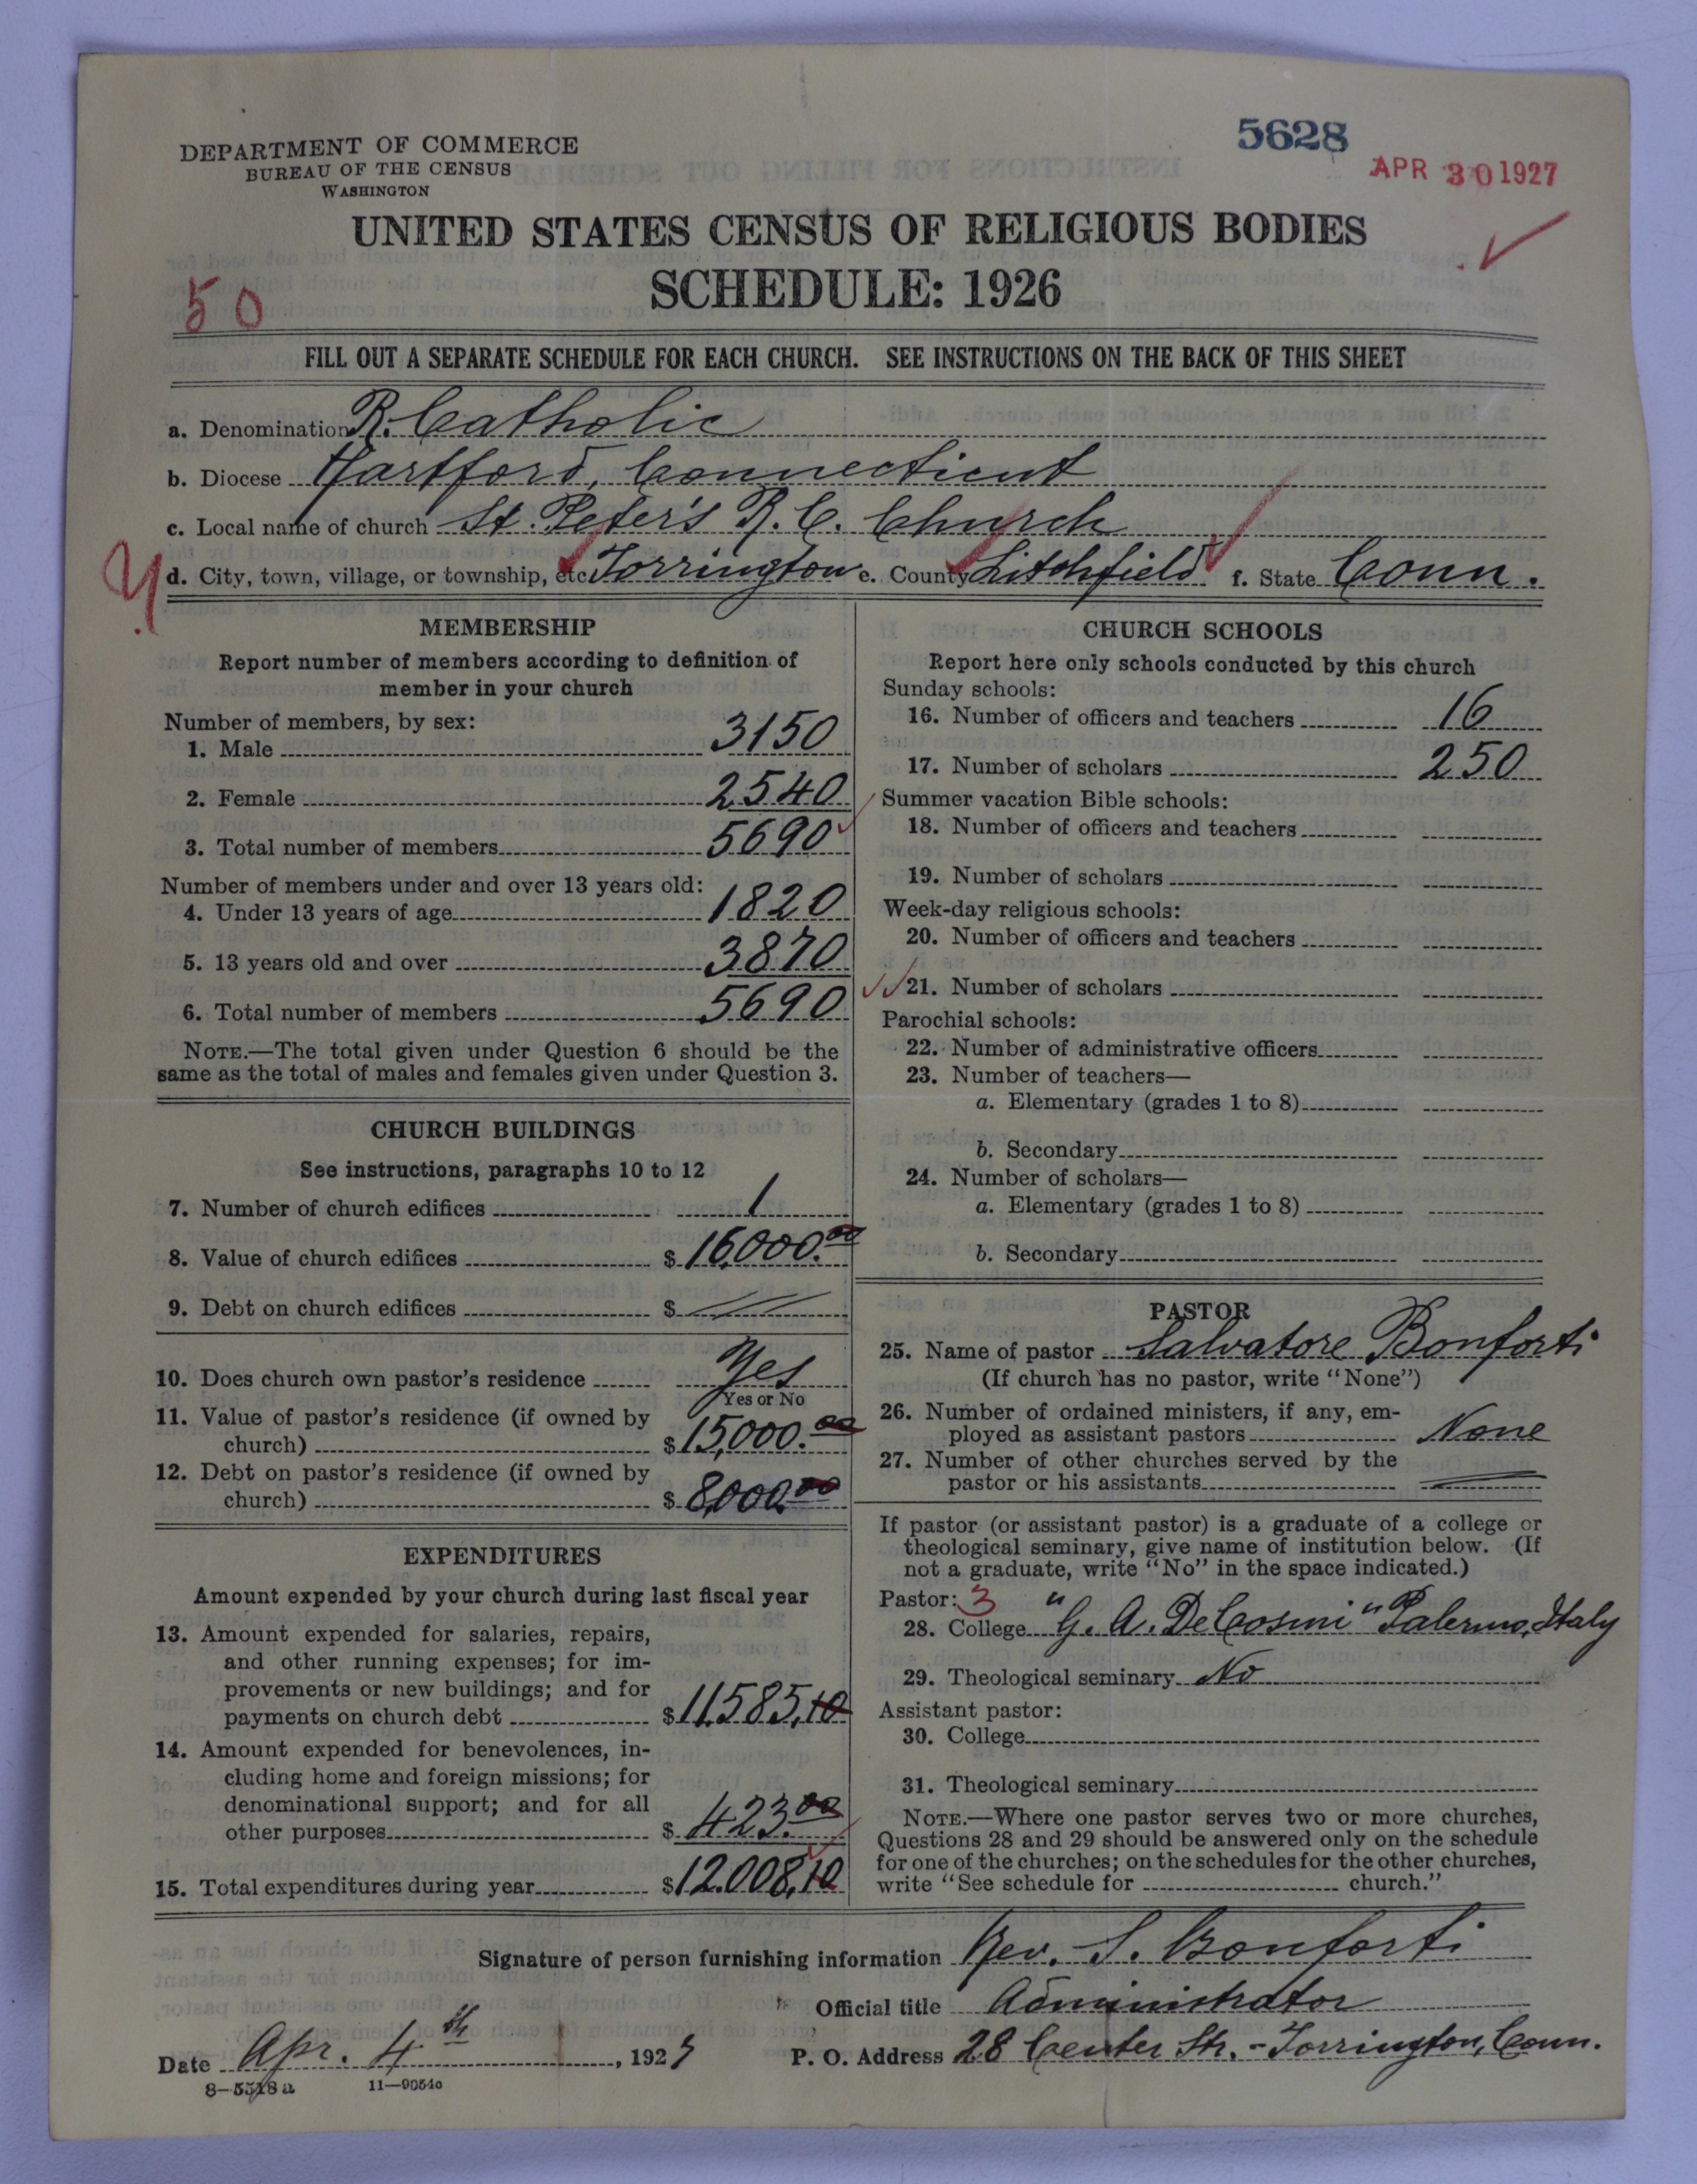 5628
APR 30 1927
DEPARTMENT OF COMMERCE
BUREAU OF THE CENSUS
WASHINGTON
UNITED STATES CENSUS OF RELIGIOUS BODIES
SCHEDULE: 1926
50
FILL OUT A SEPARATE SCHEDULE FOR EACH CHURCH. SEE INSTRUCTIONS ON THE BACK OF THIS SHEET
a. Denomination R. Catholic
b. Diocese Hartford, Connecticut
c. Local name of church St. Peter's R. C. Church
d. City, town, village, or township, etc. Torrington e. County Litchfield f. State Conn.
MEMBERSHIP
Report number of members according to definition of
member in your church
Number of members, by sex:
1. Male 3150
2. Female 2540
3. Total number of members 5690
Number of members under and over 13 years old:
4. Under 13 years of age 1820
5. 13 years old and over 3870
6. Total number of members 5690
NOTE.—The total given under Question 6 should be the
same as the total of males and females given under Question 3.
CHURCH BUILDINGS
See instructions, paragraphs 10 to 12
7. Number of church edifices 1
8. Value of church edifices $ 16,000.00
9. Debt on church edifices $
10. Does church own pastor's residence Yes
Yes or No
11. Value of pastor's residence (if owned by
church) $ 15,000.00
12. Debt on pastor's residence (if owned by
church) $ 8,000.00
EXPENDITURES
Amount expended by your church during last fiscal year
13. Amount expended for salaries, repairs,
and other running expenses; for im-
provements or new buildings; and for
payments on church debt $ 11,585,10
14. Amount expended for benevolences, in-
cluding home and foreign missions; for
denominational support; and for all
other purposes $ 423.00
15. Total expenditures during year $ 12.008,10
CHURCH SCHOOLS
Report here only schools conducted by this church
Sunday schools:
16. Number of officers and teachers 16
17. Number of scholars 250
Summer vacation Bible schools:
18. Number of officers and teachers
19. Number of scholars
Week-day religious schools:
20. Number of officers and teachers
21. Number of scholars
Parochial schools:
22. Number of administrative officers
23. Number of teachers—
a. Elementary (grades 1 to 8)
b. Secondary
24. Number of scholars—
a. Elementary (grades 1 to 8)
b. Secondary
PASTOR
25. Name of pastor Salvatore Bonforti
(If church has no pastor, write "None")
26. Number of ordained ministers, if any, em-
ployed as assistant pastors None
27. Number of other churches served by the
pastor or his assistants
If pastor (or assistant pastor) is a graduate of a college or
theological seminary, give name of institution below. (If
not a graduate, write "No" in the space indicated.)
Pastor: 3
28. College "G. A. De Cosmi" Palermo, Italy
29. Theological seminary No
Assistant pastor:
30. College
31. Theological seminary
NOTE.—Where one pastor serves two or more churches,
Questions 28 and 29 should be answered only on the schedule
for one of the churches; on the schedules for the other churches,
write "See schedule for church."
Signature of person furnishing information Rev. S. Bonforti
Official title Administrator
Date Apr. 4th, 1927 P. O. Address 28 Center Str. - Torrington, Conn.
8-5518a 11-9054c